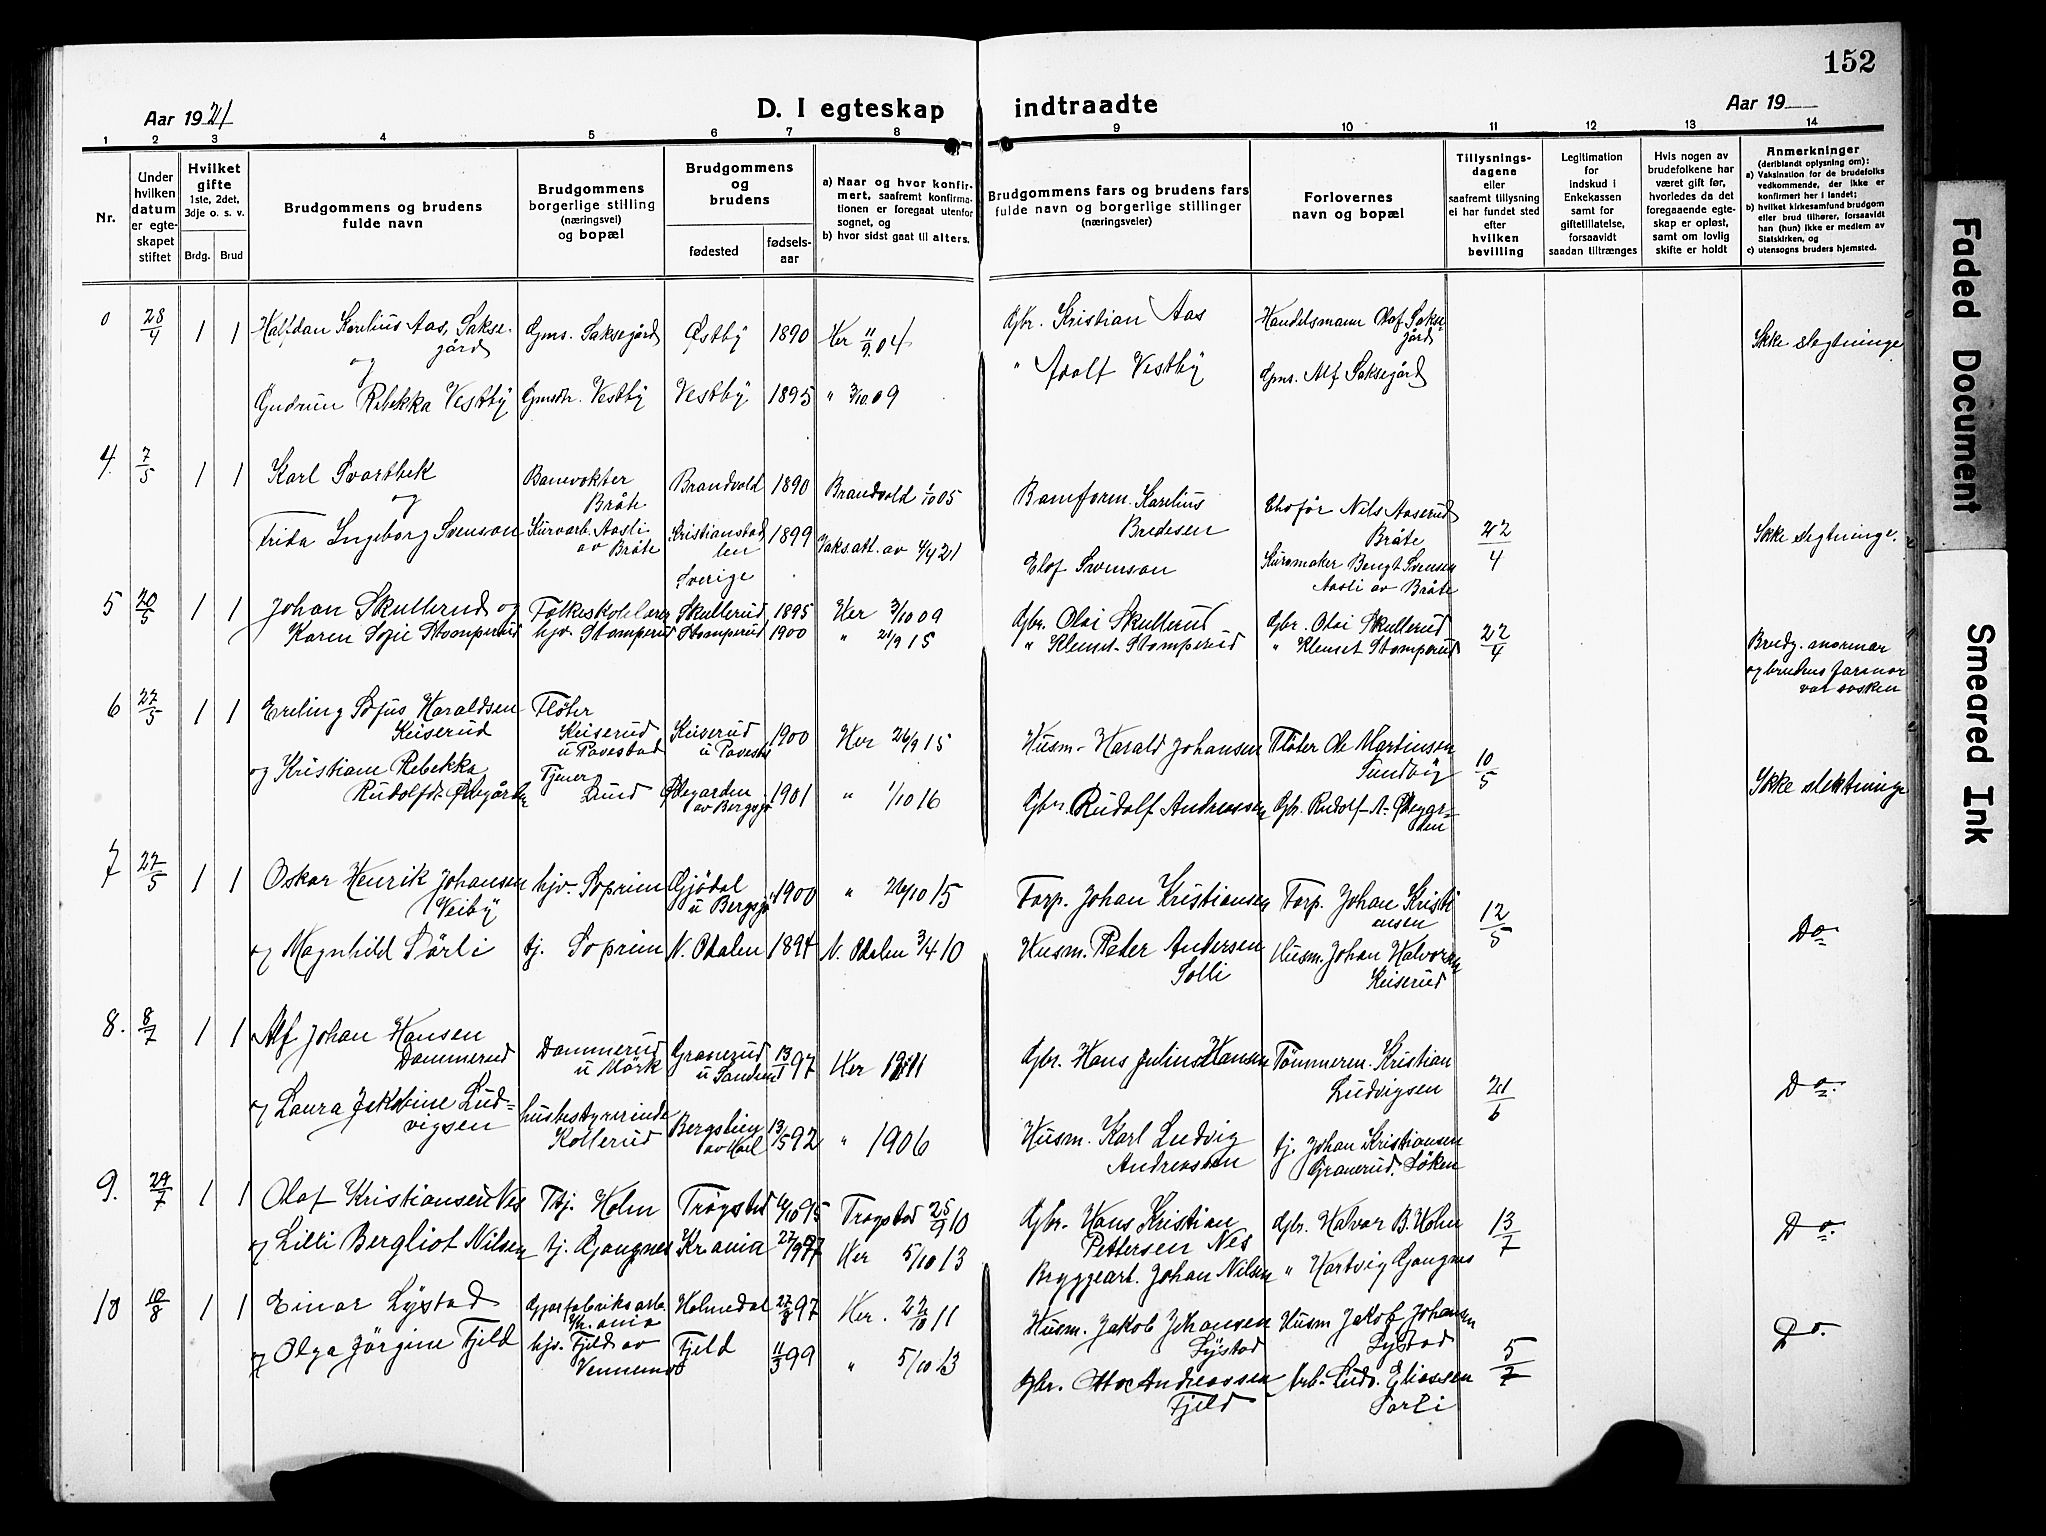 152
Aar 1921
D. I egteskap
indtraadte
Aar 19
1 2 3 4 5 6 7 8 9 10 11 12 13 14
Nr.
Under hvilken datum er egteskapet stiftet
Hvilket gifte 1ste, 2det, 3dje o. s. v.
Brdg. Brud
Brudgommens og brudens fulde navn
Brudgommens borgerlige stilling (næringsvei) og bopæl
Brudgommens og brudens
fødested
fødselsaar
a) Naar og hvor konfirmert, saafremt konfirmationen er foregaat utenfor sognet, og
b) hvor sidst gaat til alters.
Brudgommens fars og brudens fars fulde navn og borgerlige stillinger (næringsveier)
Forlovernes navn og bopæl
Tillysningsdagene eller saafremt tillysning ei har fundet sted efter hvilken bevilling
Legitimation for indskud i Enkekassen samt for giftetillatelse, forsaavidt saadan tiltrænges
Hvis nogen av brudefolkene har været gift før, hvorledes da det foregaaende egteskap er opløst, samt om lovlig skifte er holdt
Anmerkninger (deriblandt oplysning om):
a) Vaksination for de brudefolks vedkommende, der ikke er konfirmert her i landet;
b) hvilket kirkesamfund brudgom eller brud tilhører, forsaavidt han (hun) ikke er medlem av Statskirken, og
c) utensogns bruders hjemsted.
28/4 1 1 Halfdan Karelius Aas, Saksegård Gms. Saksegård Østby 1890 Her 11/9.04 Gbr. Kristian Aas Handelsmann Olaf Saksegård Ikke slegtninge
og
Gudrun Rebekka Vestby Gmsdtr. Vestby Vestby 1895 " 3/10.09 " Adolf Vestby Gms. Alf Saksegård
4. 7/5 1 1 Karl Svartbek Banevokter Bråte Brandvold 1890 Brandvold 1/10 05 Banform. Karelius Bredesen Chofør Nils Aaserud Bråte 22/4 Ikke slegtninge.
og
Frida Ingeborg Svenson Kurvarb. Aasli av Bråte Kristianstad len Sverige 1899 Vaksatt. av 4/4 21 Elof Svenson Kurvmaker Bengt Svensen Aasli av Bråte
5 20/5 1 1 Johan Skullerud og Folkeskolelærer Skullerud 1895 Her 3/10 09 Gbr. Olai Skullerud Gbr. Olai Skullerud 22/4
Karen Sofie Stomperud hjv. Stomperud Stomperud 1900 " 21/9 15 " Klemet Stomperud " Klemet Stomperud Brudg. mormor og brudens farmor var søsken
6 27/5 1 1 Erling Sofus Haraldsen Keiserud Fløter Keiserud u Tavestad Keiserud 1900 Her 26/9 15 Husm. Harald Johansen Fløter Ole Martinsen Sundby 10/5
og Kristiane Rebekka Rudolfdr. Ødegården Tjener Lund Ødegarden av Bergsj. 1901 " 1/10 16 Gbr. Rudolf Andreassen Gbr. Rudolf A. Ødegarden Ikke slektninge
7 27/5 1 1 Oskar Henrik Johansen Veiby hjv. Soprim Gjødal u Bergsj. 1900 " 26/10 15 Forp. Johan Kristiansen Forp. Johan Kristiansen 12/5 Do
og Magnhild Sørli tj. Soprim N. Odalen 1894 N. Odalen 3/4 10 Husm. Peder Andersen Solli Husm. Johan Halvorsen Keiserud
8. 8/7 1 1 Alf Johan Hansen Dammerud Dammerud u Mørk Granerud u Sandem 13/1 97 Her 1911 Gbr. Hans Julius Hansen Tømmerm. Kristian Ludvigsen 21/6 Do.
og Laura Jakobine Ludvigsen husbestyrerinde Kollerud 13/5 92 " 1906 Husm. Karl Ludvig Andreassen tj. Johan Kristiansen Granerud
9. 24/7 1 1 Olaf Kristiansen Nes Tj. Holm Trøgstad 95 Trøgstad 25/9 10 Gbr. Hans Kristian Pettersen Nes Gbr. Halvor B. Holm 13/7 Do.
og Lilli Bergliot Nilsen tj. Gangnes Kr.ania 27/9 97 Her 5/10 13 Bryggearb. Johan Nilsen " Hartvig Gangnes
10 10/8 1 1 Einar Lystad Kr.ania Holmedal 27/8 97 Her. 22/10 11 Husm. Jakob Johansen Lystad Husm Jakob Johansen Lystad 5/7 Do.
og Olga Jørgine Fjeld hjv. Fjeld av Vennemo Fjeld 11/3 99 " 5/10 13 Gbr. Otto Andreassen Fjeld Arb. Ludv. Eliassen Sorli
Faded Document
Smeared Ink